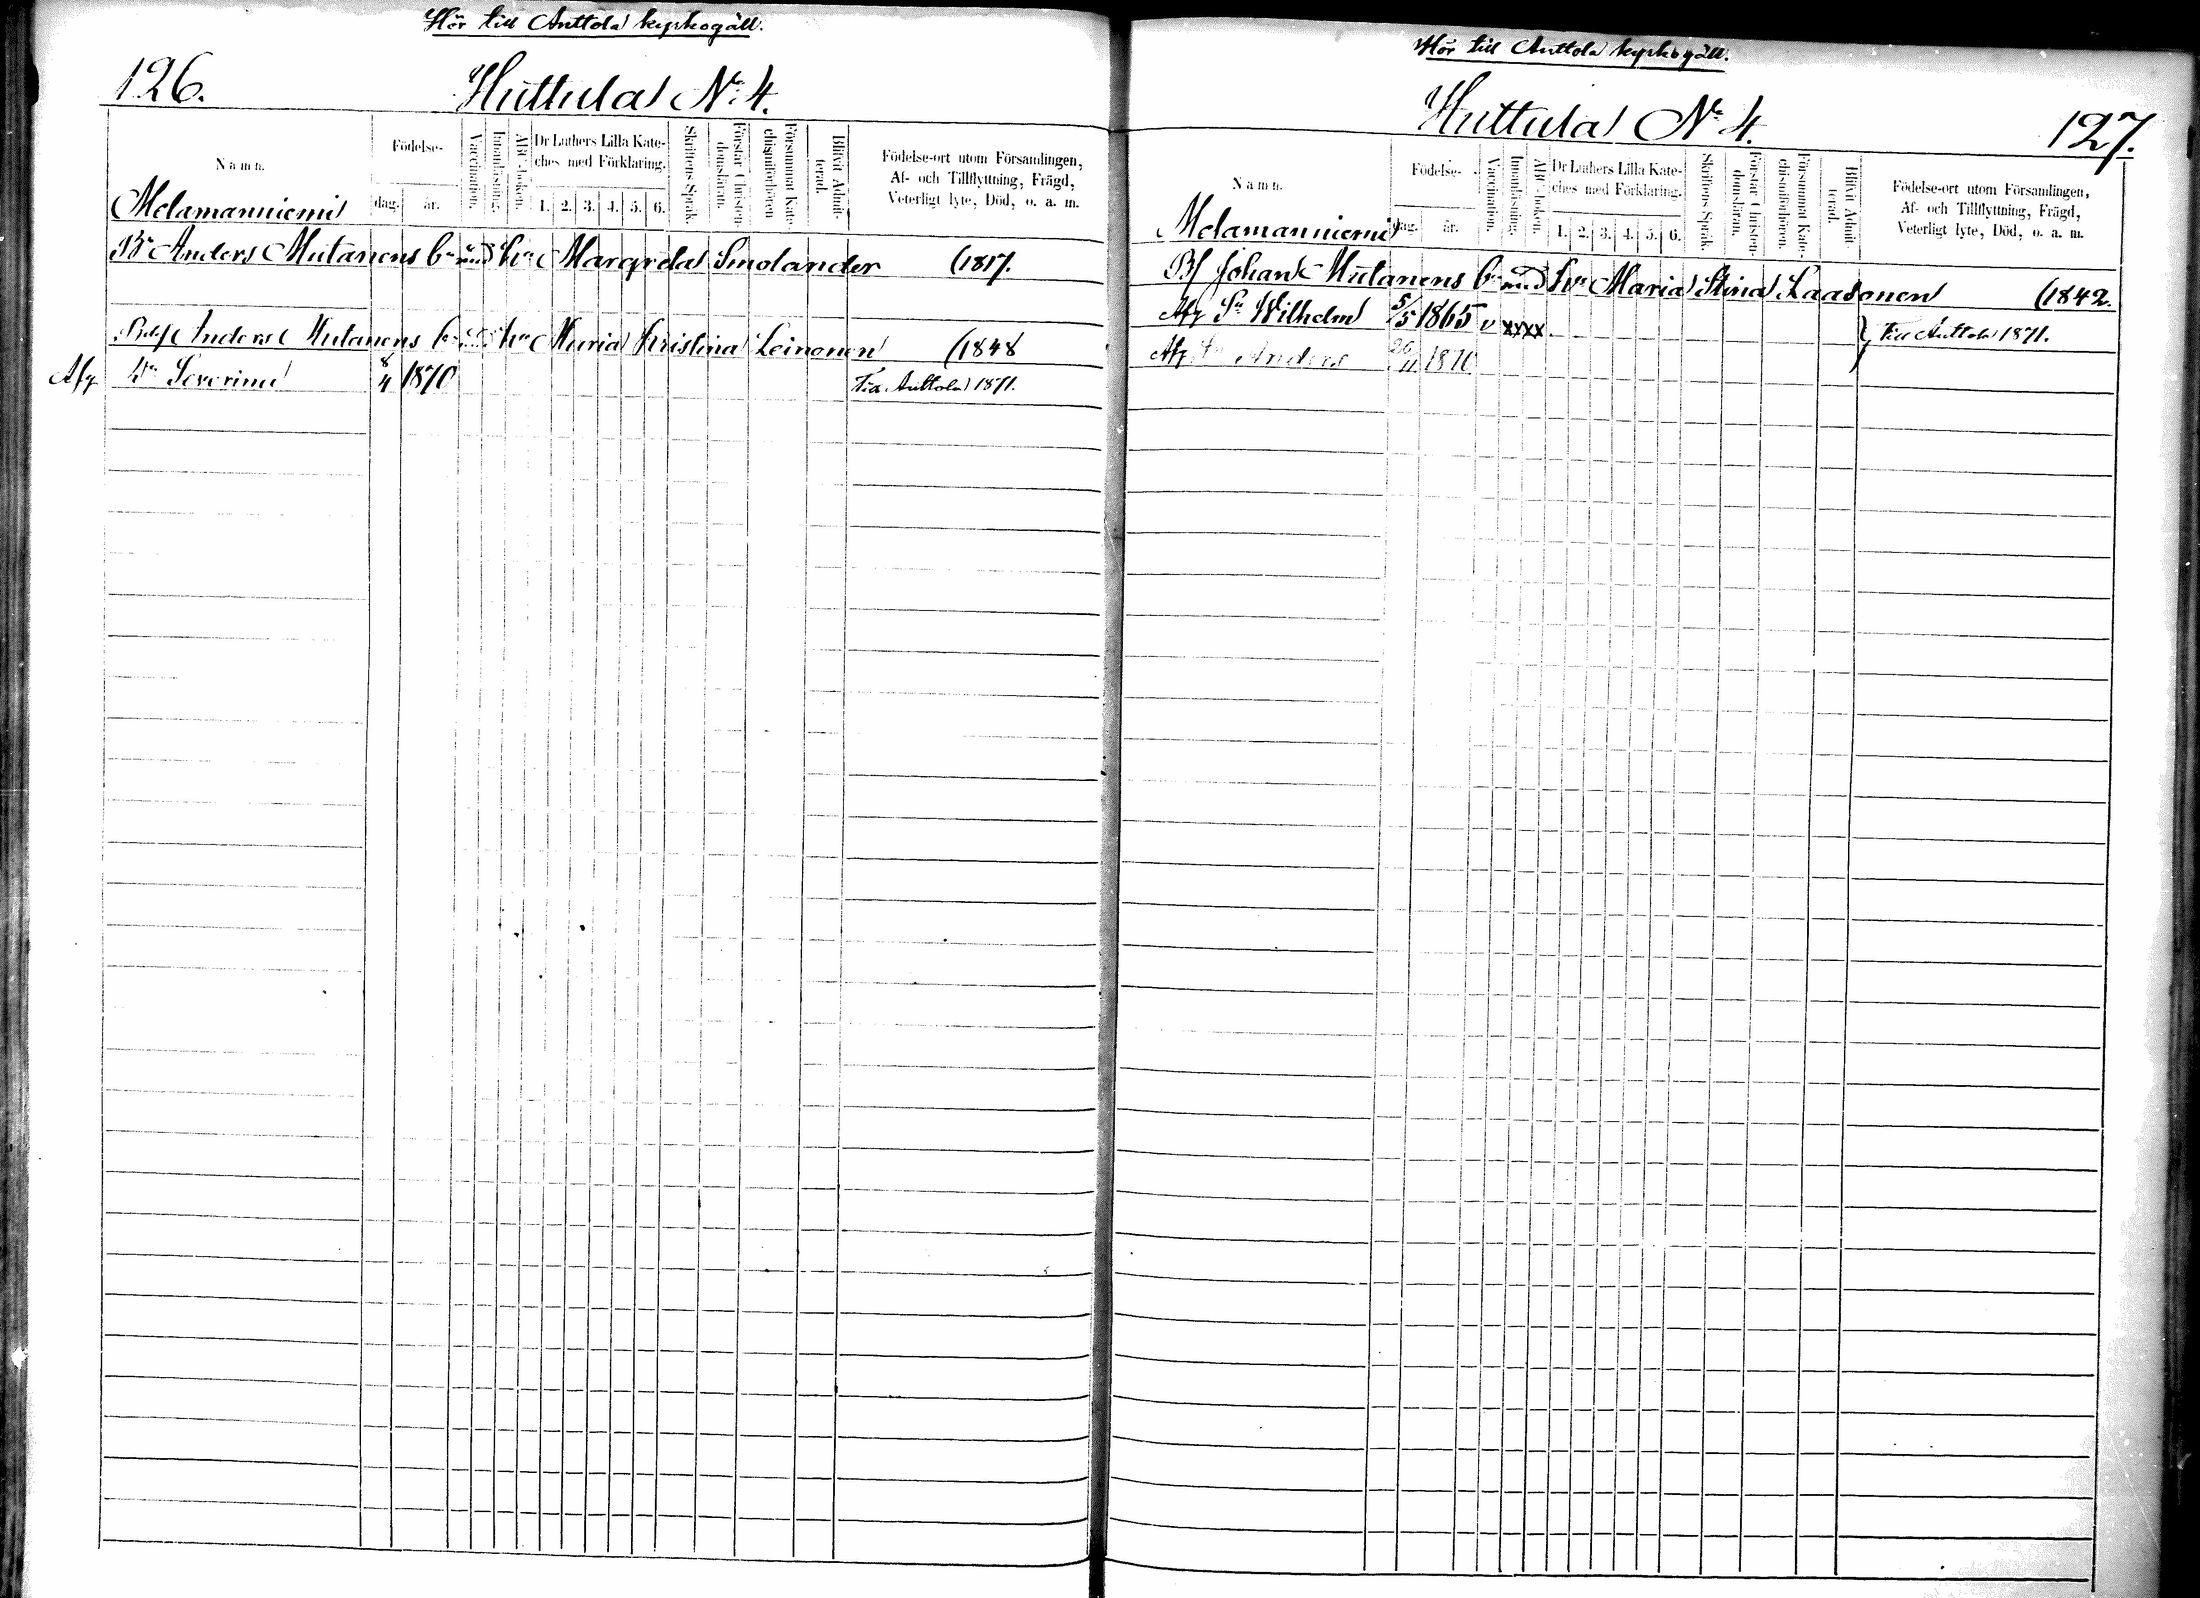 Hör till Anttola kyrkogäll.
126.
Huttula No 4.
Namn.
Födelse-
dag.
år.
Vaccination.
Innanläsning.
ABC-boken.
Dr Luthers Lilla Kate-
ches med Förklaring.
1. 2. 3. 4. 5. 6.
Skriftens Språk.
Förstår Christen-
domsläran.
Försummat Kate-
chismiförhören
Blivit Admit-
terad.
Födelse-ort utom Församlingen,
Af- och Tillflyttning, Frägd,
Veterligt lyte, Död, o. a. m.
Melamanniemi
Anders Mutanens med Margreda Smolander (1817.
Anders Mutanens Maria Kristina Leinonen (1848
Afg Severina 8/4 1870 Till Anttola 1871.
Hör till Anttola kyrkogäll.
Huttula No 4.
127.
Namn.
Födelse-
dag.
år.
Vaccination.
Innanläsning.
ABC-boken.
Dr Luthers Lilla Kate-
ches med Förklaring.
1. 2. 3. 4. 5. 6.
Skriftens Språk.
Förstår Christen-
domsläran.
Försummat Kate-
chismiförhören.
Blivit Admit-
terad.
Födelse-ort utom Församlingen,
Af- och Tillflyttning, Frägd,
Veterligt lyte, Död, o. a. m.
Melamanniemi
Johan Mutanens med Maria Stina Laasonen (1842.
Afg Sn Wilhelm 5/5 1865 v xxxx
Till Anttola 1871.
Afg Anders 26/11 1870